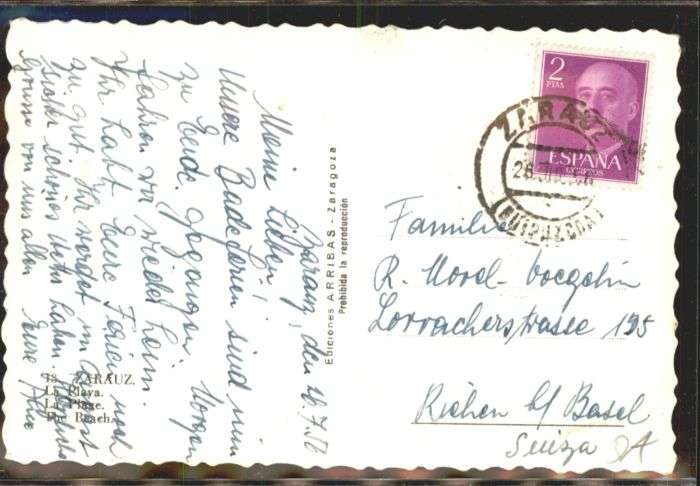 Zarauz, den 26.7.58
Meine Lieben!
Unsere Badeferien sind nun
zu Ende gegangen. Morgen
fahren wir wieder heim.
Ihr habt Eure Ferien noch
zu gut. Ihr werdet im
schönes Herzliche
Grüsse von uns allen Eure
13 ZARAUZ.
La Playa.
La Plage.
The Beach.
Ediciones ARRIBAS - Zaragoza
Prohibida la reproducción
2
PTAS
ESPAÑA
CORREOS
ZARAUZ
(GUIPUZCOA)
Familie
R. Morel-Voegelin
Lörracherstrasse 195
Riehen b/ Basel
Suiza